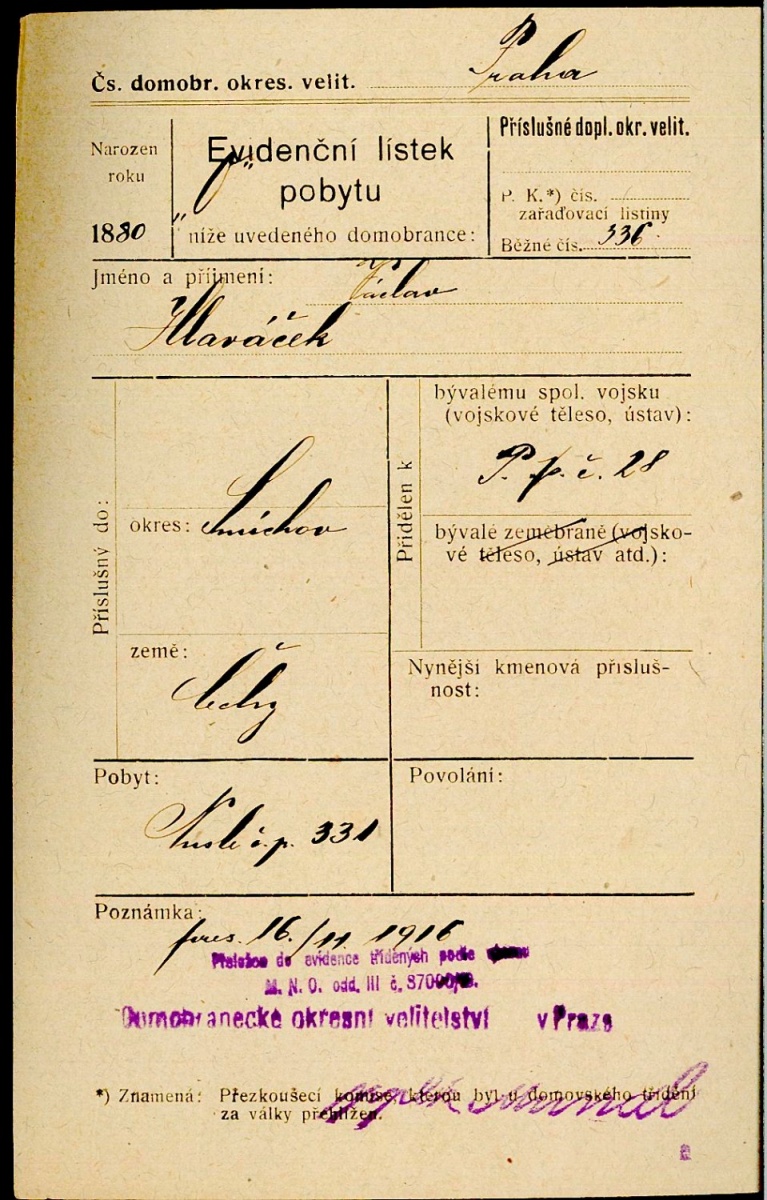 Čs. domobr. okres. velit. Praha
Narozen
roku
1880
Evidenční lístek
pobytu
níže uvedeného domobrance:
Příslušné dopl. okr. velit.
P. K.*) čís.
zařaďovací listiny
Běžné čís. 336
Jméno a příjmení: Václav
Hlaváček
Příslušný do:
okres: Smíchov
země:
Čechy
Přidělen k
bývalému spol. vojsku
(vojskové těleso, ústav):
P. p. č. 28
bývalé zeměbraně (vojsko-
vé těleso, ústav atd.):
Nynější kmenová přísluš-
nost:
Pobyt:
Nusle č.p. 331
Povolání:
Poznámka:
pres. 16./11 1916
do evidence tříděných podle
M. N. O. odd. III č.
Domobranecké okresní velitelství v Praze
*) Znamená: Přezkoušecí komise, kterou byl u domovského třídění
za války přehlížen.